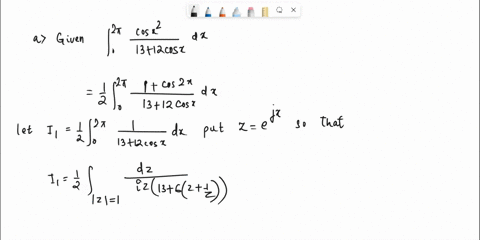 a) Given ∫₁^{2π} cosx² / (13+12cosx) dx
= 1/2 ∫₀^{2π} (1 + cos2x) / (13+12cosx) dx
let I₁ = 1/2 ∫₀^{2π} 1 / (13+12cosx) dx put z = e^{jx} so that
I₁ = 1/2 ∫_{|z|=1} dz / (iz(13+6(z+1/z)))